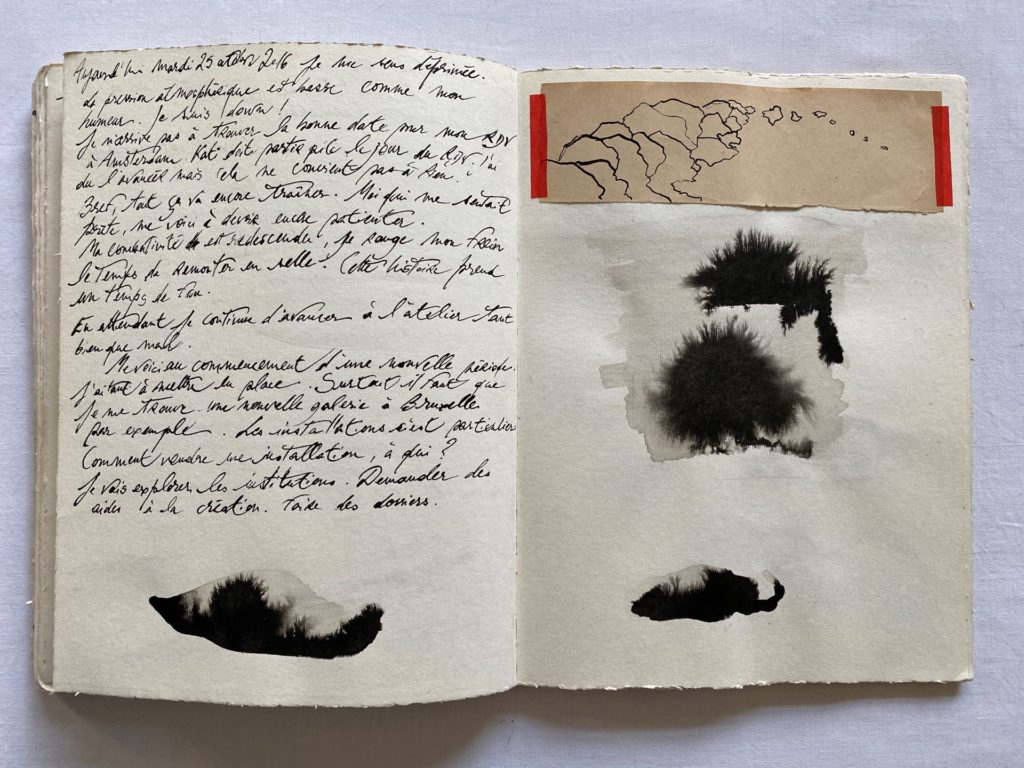 Aujourd'hui mardi 25 octobre 2016 je me sens déprimée.
La pression atmosphérique est basse comme mon
humeur. Je suis down!
Je n'arrive pas à trouver la bonne date pour mon RDV
à Amsterdam. Kati doit partir le jour du RDV. J'ai
dû l'avancer mais cela ne convient pas à
Bref, ça va encore traîner. Moi qui me sentait
prête, me voici à devoir encore patienter.
Ma combativité est redescendue, je ronge mon frein
le temps de remonter en selle. Cette histoire prend
un temps de fou.
En attendant je continue d'avancer à l'atelier tant
bien que mal.
Me voici au commencement d'une nouvelle période.
J'ai tant à mettre en place. Surtout il faut que
je me trouve une nouvelle galerie à Bruxelles
par exemple. Les installations c'est particulier
Comment vendre une installation, à qui?
Je vais explorer les institutions. Demander des
aides à la création. Faire des dossiers.